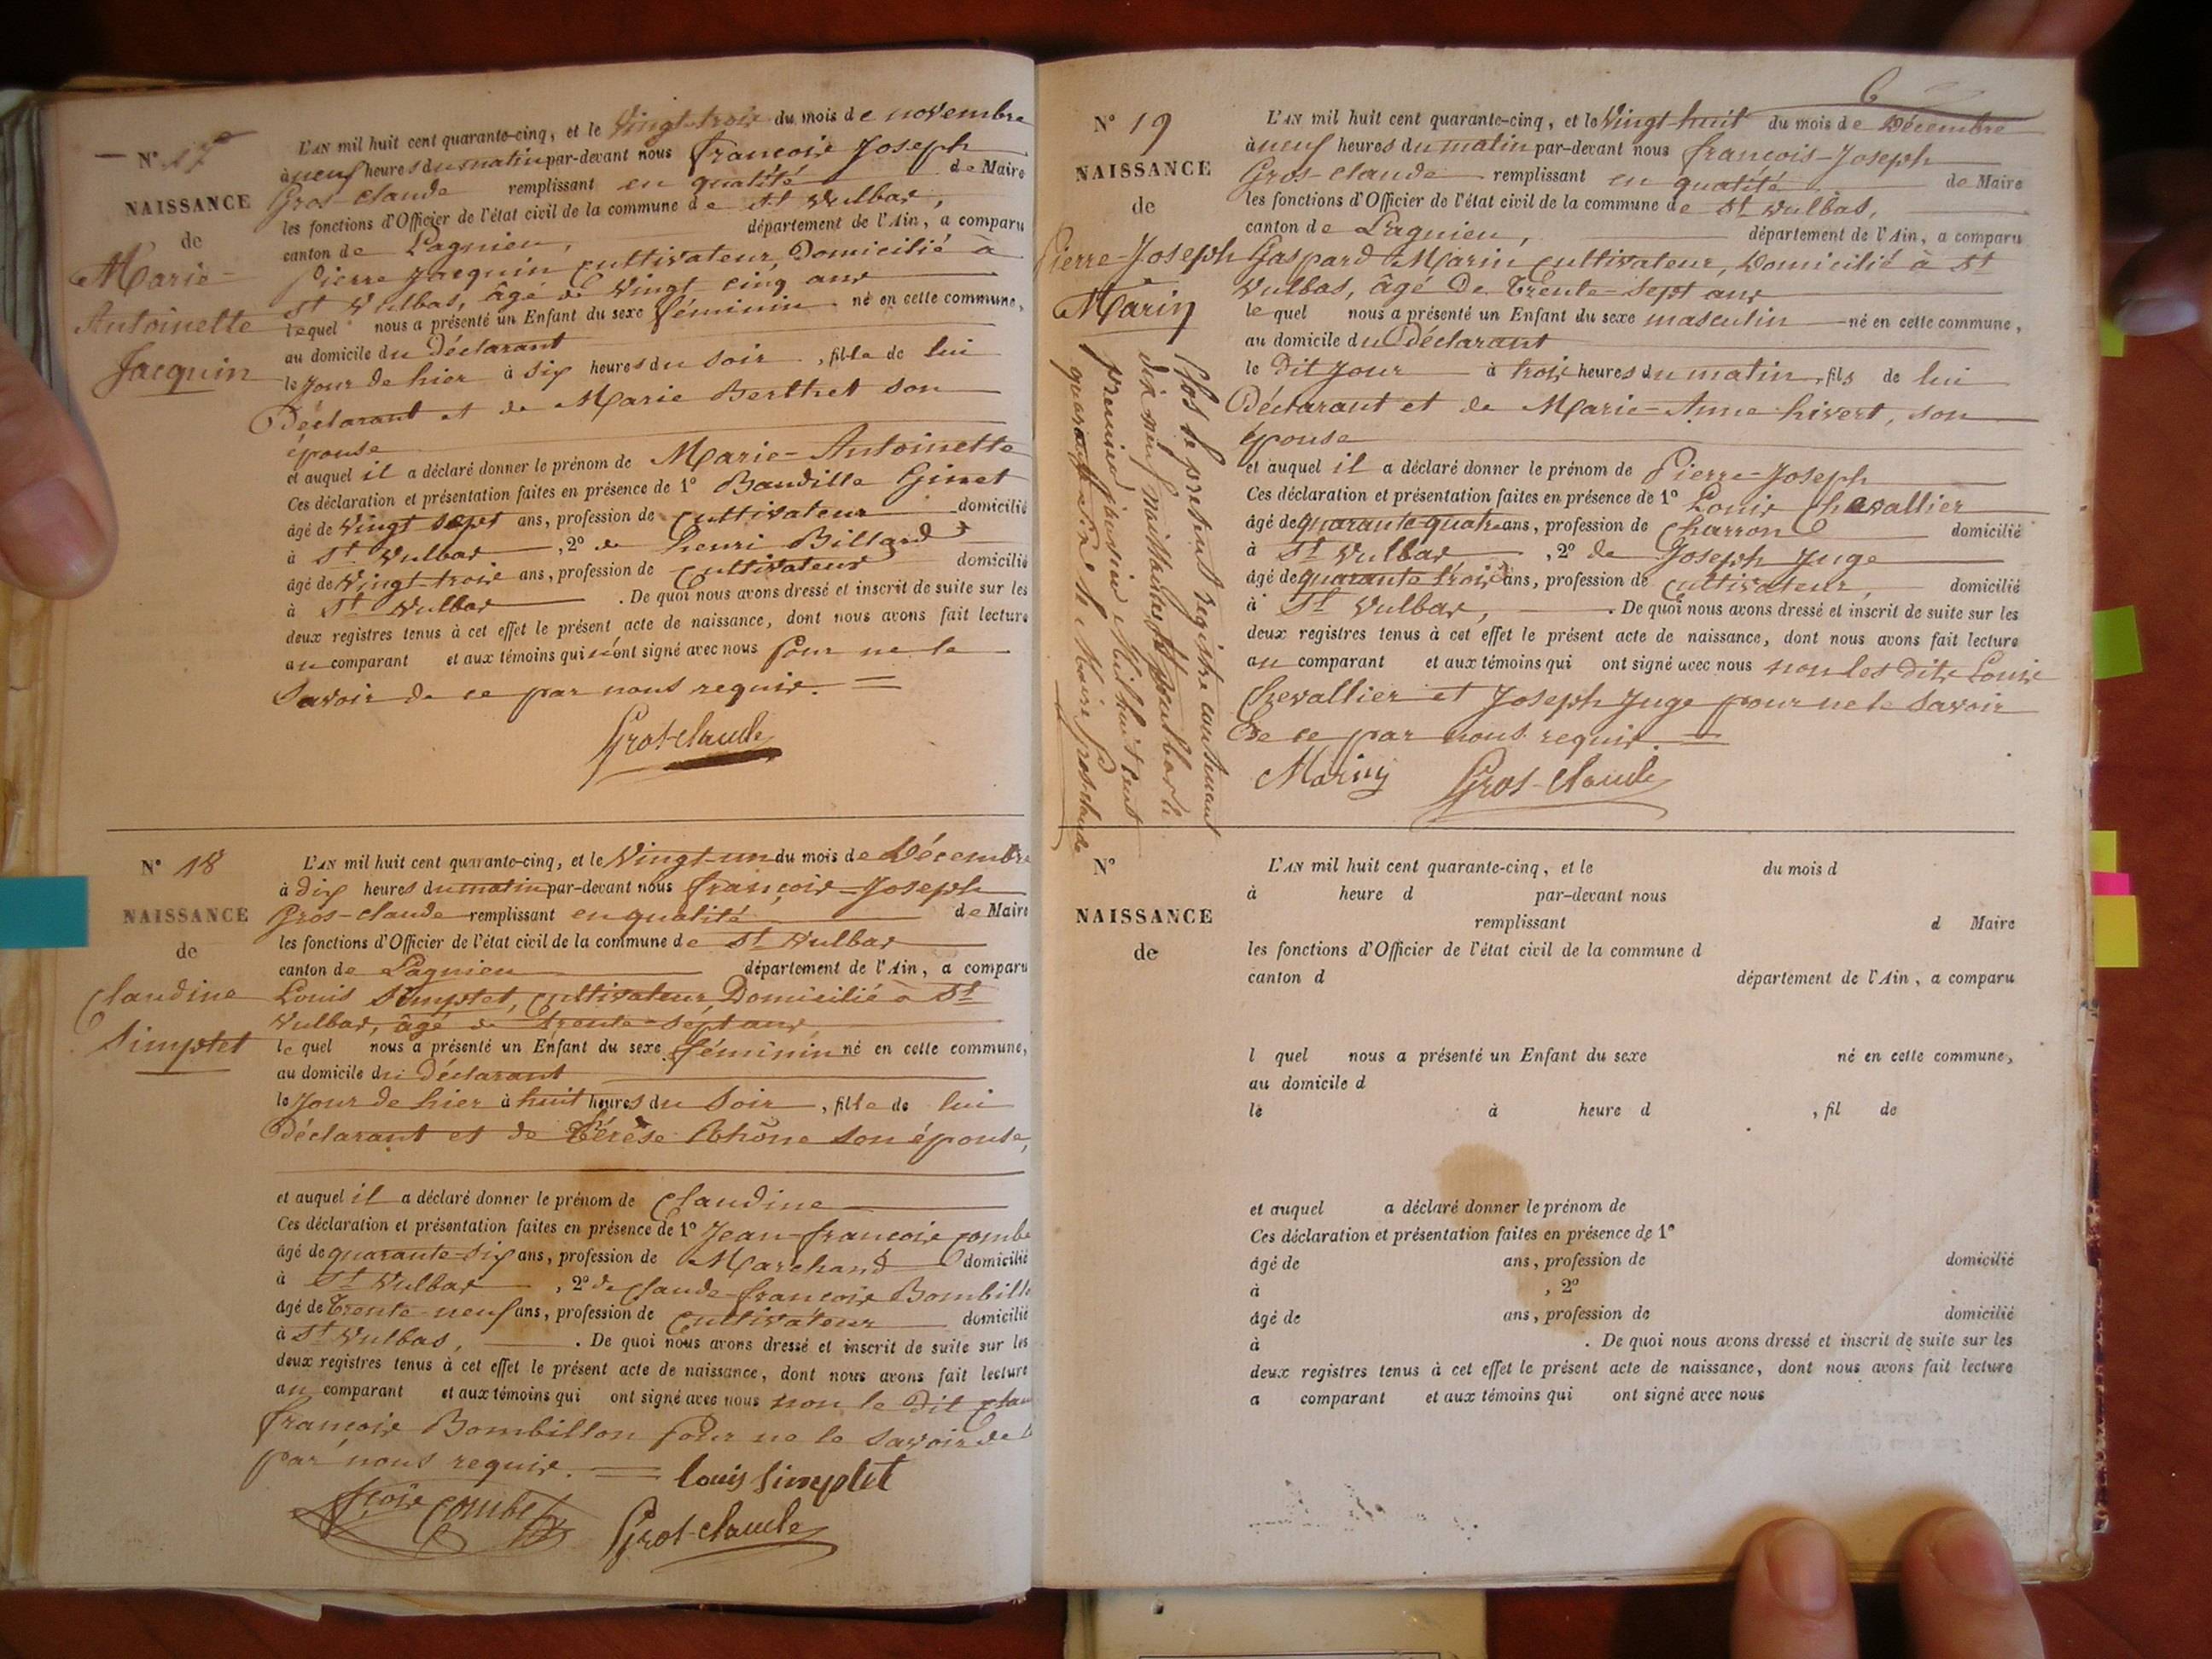 N° 17
NAISSANCE
de
Marie-
Antoinette
Jacquin
L'AN mil huit cent quarante-cinq, et le Vingt-trois du mois de novembre
à neuf heures du matin par-devant nous françois Joseph
Gros-claude remplissant en qualité de Maire
les fonctions d'Officier de l'état civil de la commune de St Vulbas,
canton de Lagnieu, département de l'Ain, a comparu
Pierre Jacquin cultivateur, Domicilié à
St Vulbas, âgé de Vingt cinq ans
lequel nous a présenté un Enfant du sexe féminin né en cette commune,
au domicile du Déclarant
le Jour de hier à six heures du soir, fille de lui
Déclarant et de Marie Berthet son
épouse
et auquel il a déclaré donner le prénom de Marie-Antoinette
Ces déclaration et présentation faites en présence de 1° Baudille Ginet
âgé de Vingt sept ans, profession de Cultivateur domicilié
à St Vulbas, 2° de henri Billard
âgé de Vingt-trois ans, profession de Cultivateur domicilié
à St Vulbas. De quoi nous avons dressé et inscrit de suite sur les
deux registres tenus à cet effet le présent acte de naissance, dont nous avons fait lecture
au comparant et aux témoins qui n'ont signé avec nous Pour ne le
Savoir de ce par nous requis. =
Gros-claude
N° 18
NAISSANCE
de
Claudine
Simptet
L'AN mil huit cent quarante-cinq, et le Vingt-un du mois de Décembre
à dix heures du matin par-devant nous françois-Joseph
Gros-claude remplissant en qualité de Maire
les fonctions d'Officier de l'état civil de la commune de St Vulbas
canton de Lagnieu département de l'Ain, a comparu
Louis Simptet, Cultivateur, Domicilié à St
Vulbas, âgé de trente-sept ans,
le quel nous a présenté un Enfant du sexe féminin né en cette commune,
au domicile du Déclarant
le Jour de hier à huit heures du Soir, fille de lui
Déclarant et de Térèse Rhône son épouse,
et auquel il a déclaré donner le prénom de Claudine
Ces déclaration et présentation faites en présence de 1° Jean-françois Combe
âgé de quarante-six ans, profession de Marchand domicilié
à St Vulbas, 2° de Claude-françois Bombill
âgé de Trente-neuf ans, profession de Cultivateur domicilié
à St Vulbas, . De quoi nous avons dressé et inscrit de suite sur les
deux registres tenus à cet effet le présent acte de naissance, dont nous avons fait lecture
au comparant et aux témoins qui ont signé avec nous non le dit Clau
françois Bombillon Pour ne le Savoir de
par nous requis. = Louis Simplet
fçois Combe Gros-claude
6
N° 19
NAISSANCE
de
Pierre-Joseph
Marin
L'AN mil huit cent quarante-cinq, et le Vingt-huit du mois de Décembre
à neuf heures du matin par-devant nous françois-Joseph
Gros-claude remplissant en qualité de Maire
les fonctions d'Officier de l'état civil de la commune de St Vulbas,
canton de Lagnieu, département de l'Ain, a comparu
Gaspard Marin Cultivateur, Domicilié à St
Vulbas, âgé De Trente-sept ans
le quel nous a présenté un Enfant du sexe masculin né en cette commune,
au domicile du Déclarant
le Dit Jour à trois heures du matin, fils de lui
Déclarant et de Marie-Anne hivert, son
épouse
et auquel il a déclaré donner le prénom de Pierre-Joseph
Ces déclaration et présentation faites en présence de 1° Louis Chevallier
âgé de quarante-quatre ans, profession de Charron domicilié
à St Vulbas, 2° de Joseph Juge
âgé de quarante trois ans, profession de Cultivateur, domicilié
à St Vulbas, . De quoi nous avons dressé et inscrit de suite sur les
deux registres tenus à cet effet le présent acte de naissance, dont nous avons fait lecture
au comparant et aux témoins qui ont signé avec nous non les dits Louis
Chevallier et Joseph Juge pour ne le Savoir
De ce par nous requis =
Marin Gros-claude
Clos le présent registre contenant
dix neuf naissances
premier janvier Mil huit cent
quarante six le Maire Gros-claude
N°
NAISSANCE
de
L'AN mil huit cent quarante-cinq, et le du mois d
à heure d par-devant nous
remplissant d Maire
les fonctions d'Officier de l'état civil de la commune d
canton d département de l'Ain, a comparu
l quel nous a présenté un Enfant du sexe né en cette commune,
au domicile d
le à heure d , fil de
et auquel a déclaré donner le prénom de
Ces déclaration et présentation faites en présence de 1°
âgé de ans, profession de domicilié
à , 2°
âgé de ans, profession de domicilié
à . De quoi nous avons dressé et inscrit de suite sur les
deux registres tenus à cet effet le présent acte de naissance, dont nous avons fait lecture
a comparant et aux témoins qui ont signé avec nous